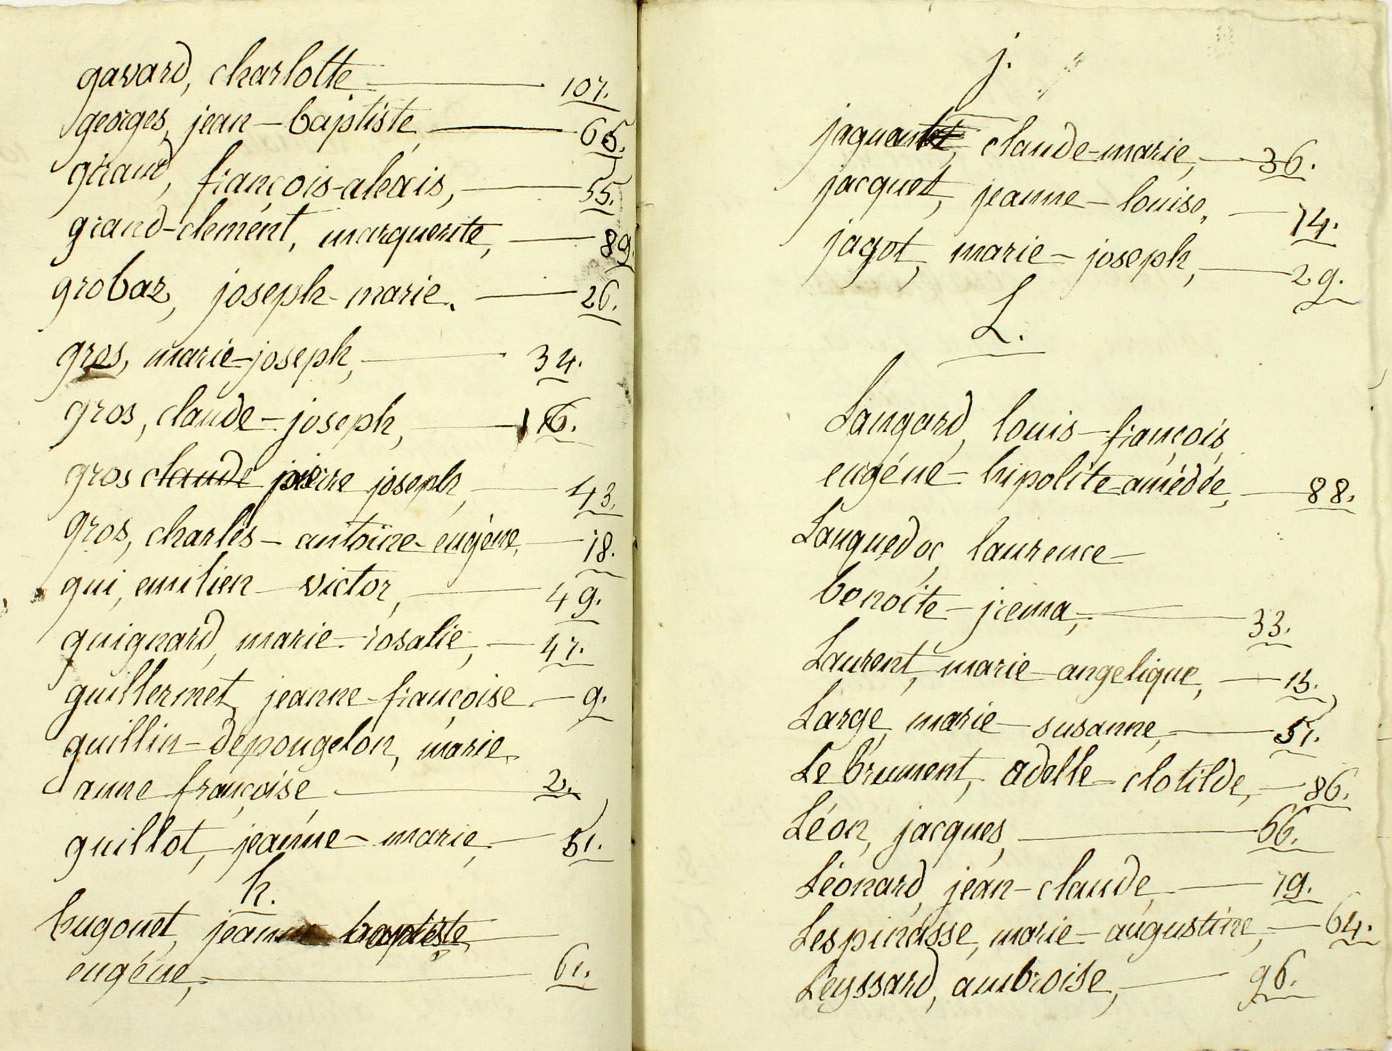 gavard, charlotte 107.
georges, jean-baptiste, 65.
giraud, françois-alexis, 55.
grand-clément, marguerite, 89.
grobaz, joseph-marie. 26.
gros, marie-joseph, 34.
gros, claude-joseph, 16.
gros claude pierre joseph, 43.
gros, charles-antoine-eugéne, 78.
gui, emilien-victor, 49.
guignard, marie-rosalie, 47.
guillermet, jeanne-françoise 9.
guillin-depougelon, marie
anne françoise 2.
guillot, jeanne-marie, 51.
h.
hugonet, jeanne baptiste
eugéne, 61.
j.
claude-marie, 36.
jacquet, jeanne-louise, 74.
jagot, marie-joseph, 29.
L.
Langard, louis-françois,
eugéne-hipolite-amédée, 88.
Languedoc, laurence-
benoite-jrema, 33.
Laurent, marie-angelique, 15.
Large, marie-susanne, 51.
Le brument, adelle-clotilde, 86.
Léon, jacques, 66.
Léonard, jean-claude, 79.
Lespinasse, marie-augustine, 64.
Leyssard, ambroise, 96.